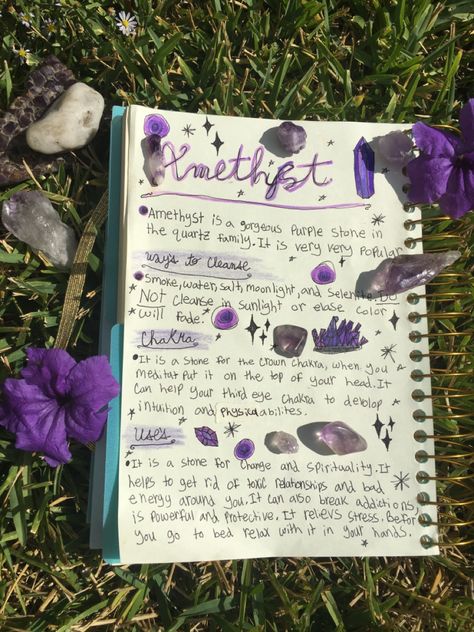 Amethyst
Amethyst is a gorgeous Purple stone in
the quartz family. It is very very Popular
ways to Cleanse
Smoke, water, salt, moonlight, and Selenite. Do
NOT Cleanse in sunlight or elase color
will fade.
Chakra
It is a stone for the Crown Chakra, when you
meditat Put it on the top of your head. It
Can help your third eye Chakra to deblop
intuition and physical abilites.
Uses
It is a stone for Change and spirituality. It
helps to get rid of toxic relationships and bad
energy around you. It can also break addictions,
is powerful and protective. It relevs stress. Befor
you go to bed relax with it in your hands.